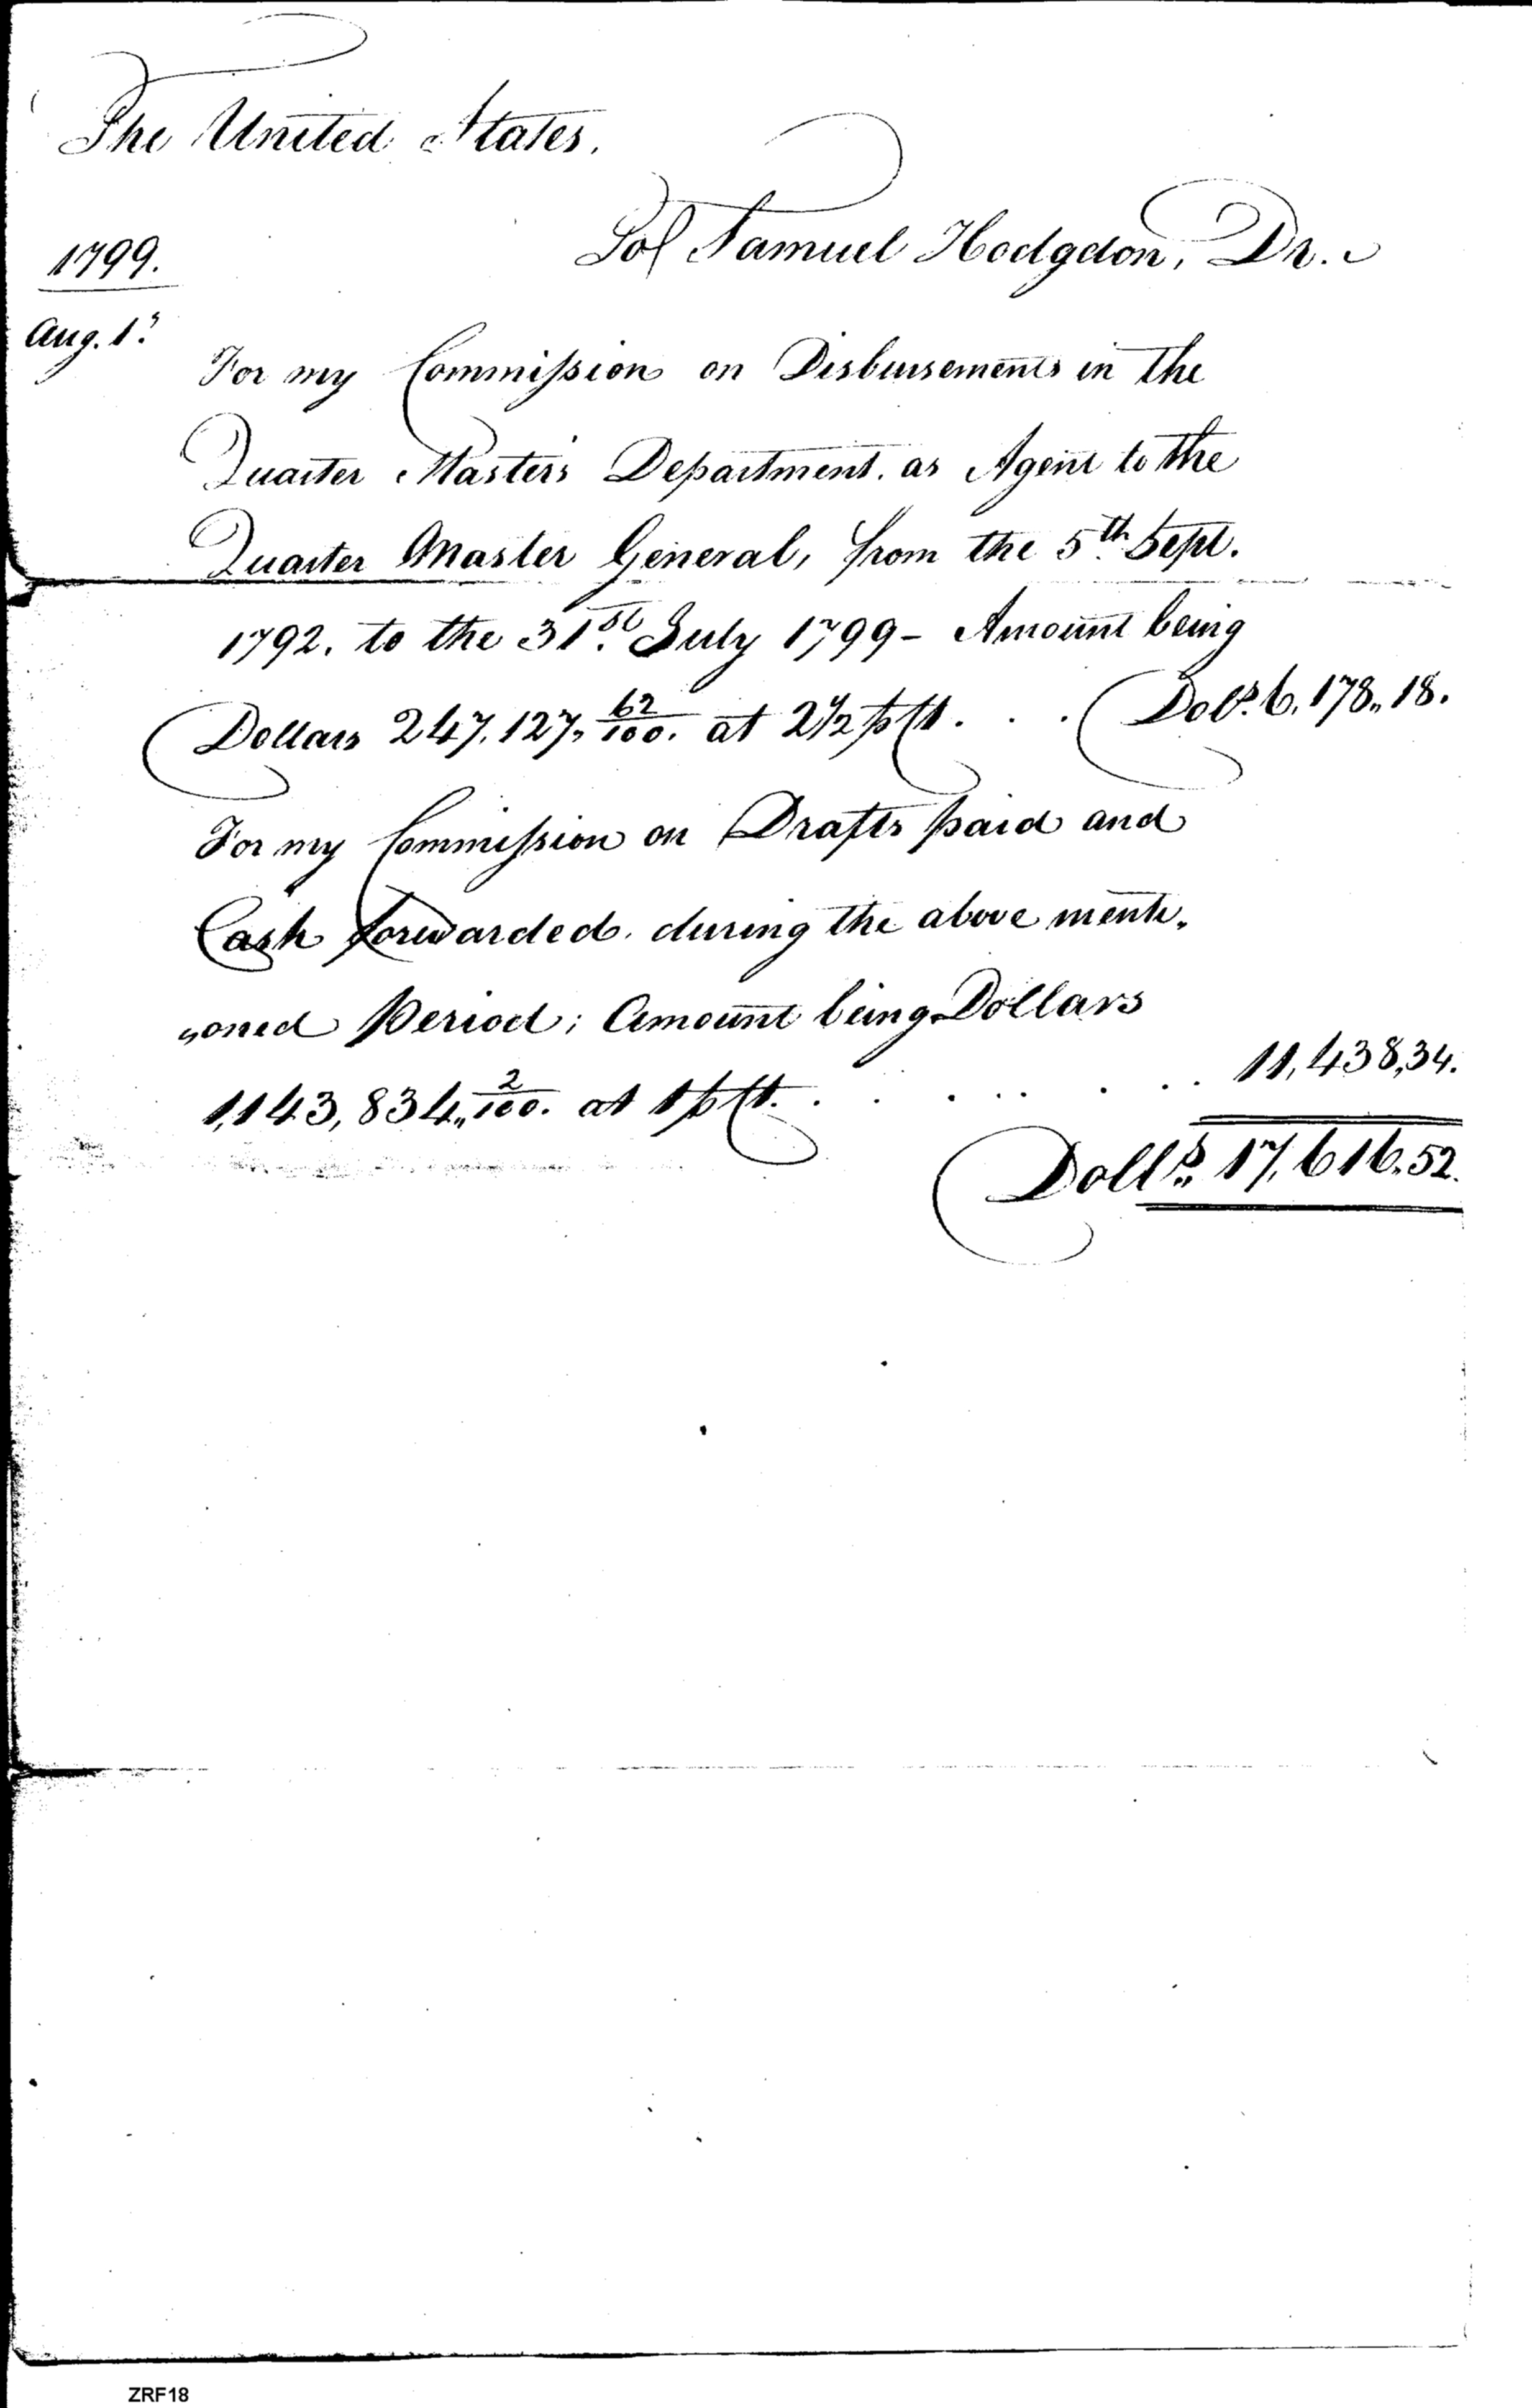 The United States.
To Samuel Hodgdon, Dr.
1799.
Aug. 1st
For my Commission on Disbursements in the
Quarter Masters Department. as Agent to the
Quarter Master General, from the 5th Sept.
1792. to the 31st July 1799 - Amount being
Dollars 247,127 62/100. at 2 1/2 p Ct. . . . Dols. 6,178,,18.
For my Commission on Drafts paid and
Cash forwarded. during the above menti„
„oned Period; Amount being Dollars
1,143,834,, 2/100. at 1 p Ct. . . . . . . . . 11,438,34.
Dolls. 17,616,52.
ZRF18